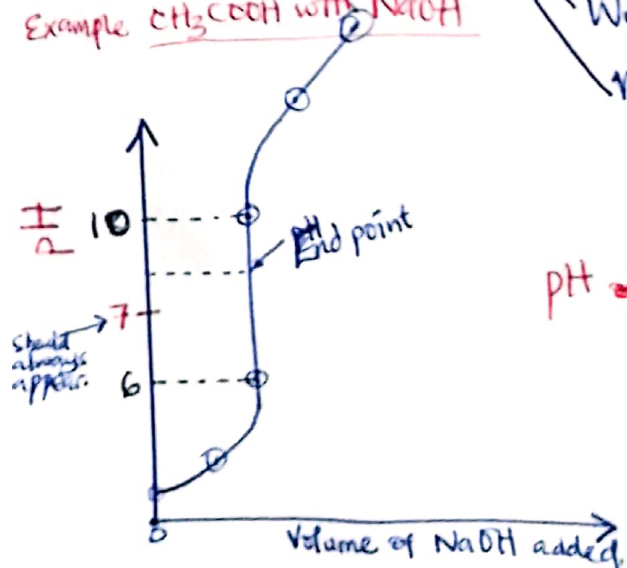 Example CH3COOH with NaOH
pH
10
End point
7
should
always
appear.
6
pH
0
Volume of NaOH added.